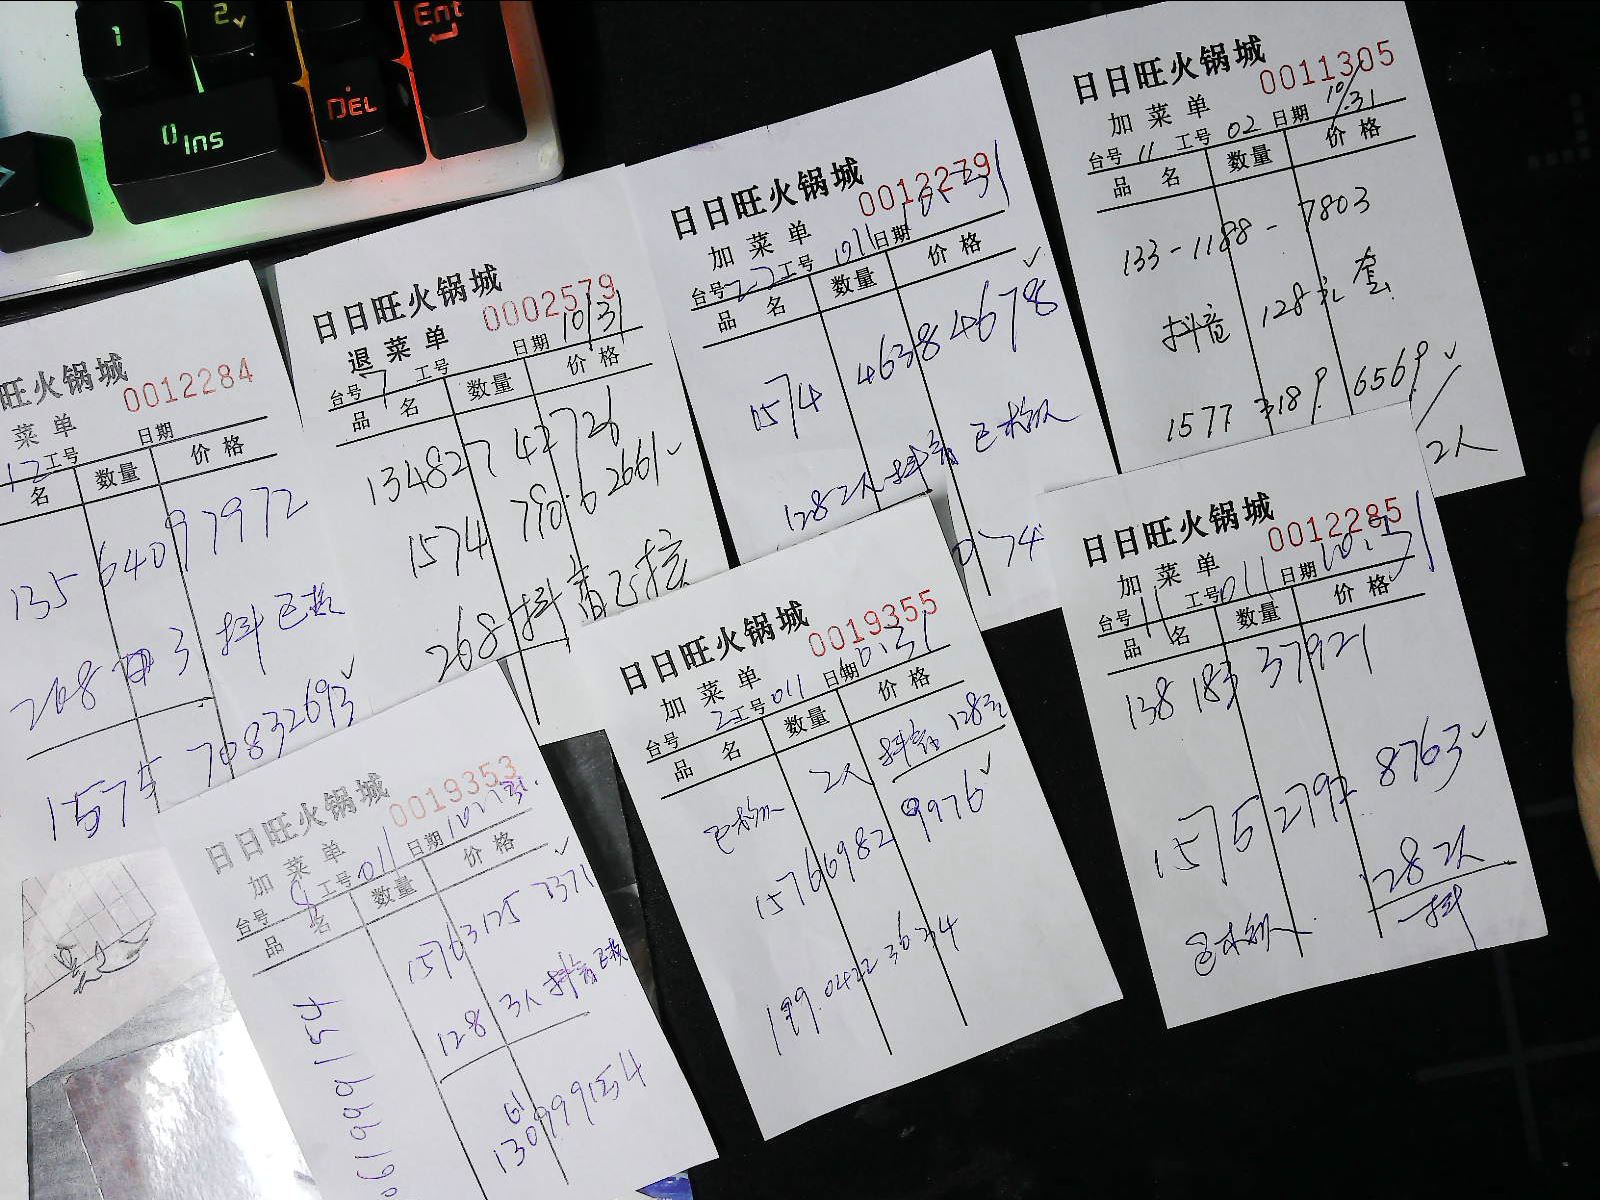 1
2
Ent
0 Ins
DEL
旺火锅城
0012284
菜单
日期
12 工号
名 数量 价格
135 6409 7972
268 3 抖 已核
1575 7983 2693
日日旺火锅城
0002579
退菜单
日期 10/31
台号 7 工号
品名 数量 价格
134827 42726
1574 790.6 2661
268 抖音已核
日日旺火锅城
0012279
加菜单
日期
台号 22 工号 1011
品名 数量 价格
1574 4638 4678
128 2人 抖音 已核
日日旺火锅城
0011305
加菜单
日期 10/31
台号 11 工号 02
品名 数量 价格
133-1188-7803
抖音 128 礼 套
1577 3189 6569
2人
日日旺火锅城
0019353
加菜单
台号 8 工号 011 日期
品名 数量 价格
15763125 3371
128 3人 抖音已核
日日旺火锅城
0019355
加菜单
日期 10.31
台号 2 工号 011
品名 数量 价格
抖音 128元
已核 2人
1576 6982 9976
199.0422 3634
日日旺火锅城
0012285
加菜单
日期 10.31
台号 11 工号 011
品名 数量 价格
138 183 37921
1575 2792 8763
128 2人
已核 抖